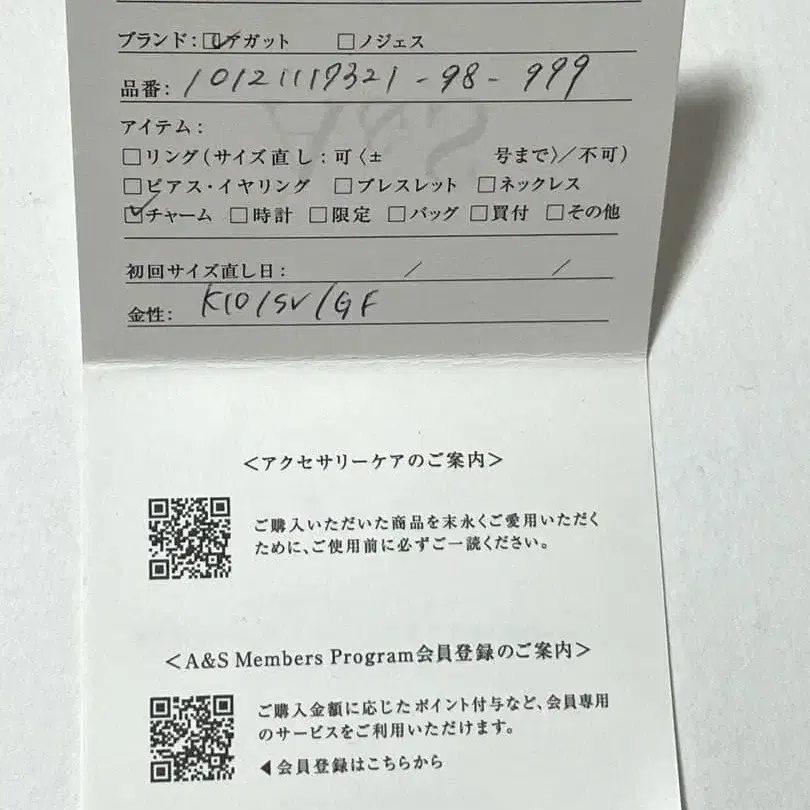 ブランド:☑アガット □ノジェス
品番: 10121119321-98-999
アイテム:
□リング(サイズ直し:可〈± 号まで〉/不可)
□ピアス・イヤリング □ブレスレット □ネックレス
☑チャーム □時計 □限定 □バッグ □買付 □その他
初回サイズ直し日: / /
金性: K10/SV/GF
<アクセサリーケアのご案内>
ご購入いただいた商品を末永くご愛用いただく
ために、ご使用前に必ずご一読ください。
<A&S Members Program会員登録のご案内>
ご購入金額に応じたポイント付与など、会員専用
のサービスをご利用いただけます。
◀会員登録はこちらから